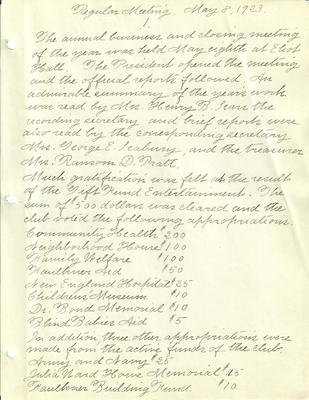 Regular Meeting, May 8, 1923.
1.
The annual business and closing meeting
of the year was held May eighth at Eliot
Hall. The President opened the meeting
and the official reports followed. An
admirable summary of the year's work
was read by Mrs. Henry B. the
recording secretary and brief reports were
also read by the corresponding secretary
Mrs. George E. Seabury, and the treasurer
Mrs. Ransom D. Pratt.
Much gratification was felt at the result
of the Gift Fund Entertainment. The
sum of $500 dollars was cleared and the
club voted the following appropriations.
Community Health $200
Neighborhood House $100
Family Welfare $100
Faulkner Aid $50
New England Hospital $25
Childrens Museum $10
Dr. Bond Memorial $10
Blind Babies Aid $5
In addition three other appropriations were
made from the active funds of the club.
Army and Navy $25
Julia Ward Howe Memorial $15
Faulkner Building Fund $10